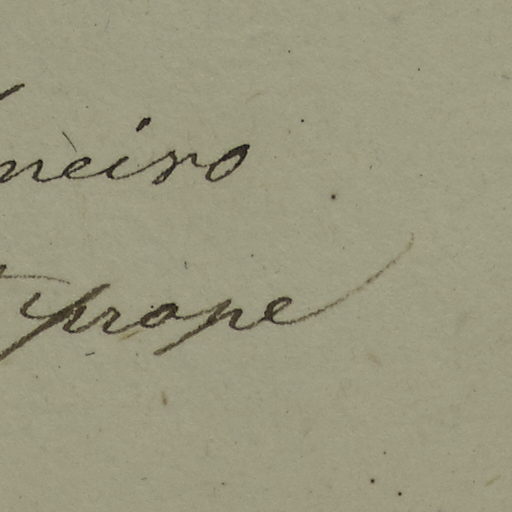 neiro
prope